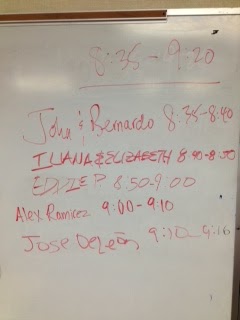 8:35 - 9:20
John & Bernardo 8:35-8:40
ILIANA & ELIZABETH 8:40-8:50
8:50-9:00
Alex Ramirez 9:00-9:10
Jose DeLeón 9:10 9:16